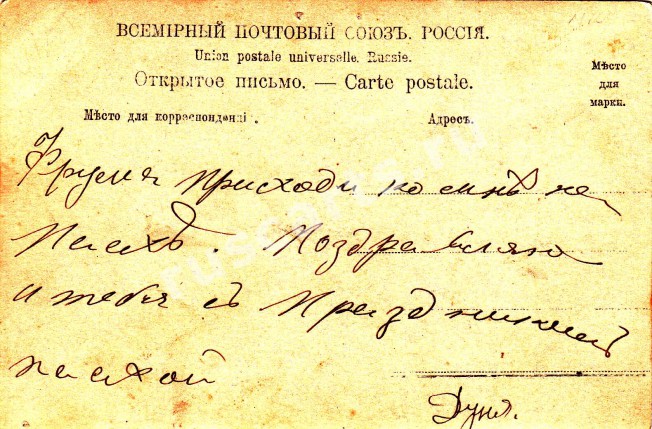 ВСЕМІРНЫЙ ПОЧТОВЫЙ СОЮЗЪ. РОССІЯ.
Union postale universelle. Russie.
Открытое письмо. — Carte postale.
Мѣсто
для
марки.
Мѣсто для корреспонденці .
Адресъ.
приходи ко мнѣ на
Пасхъ. Поздравляю
и тебя съ Праздникомъ
пасхой
Дуня.